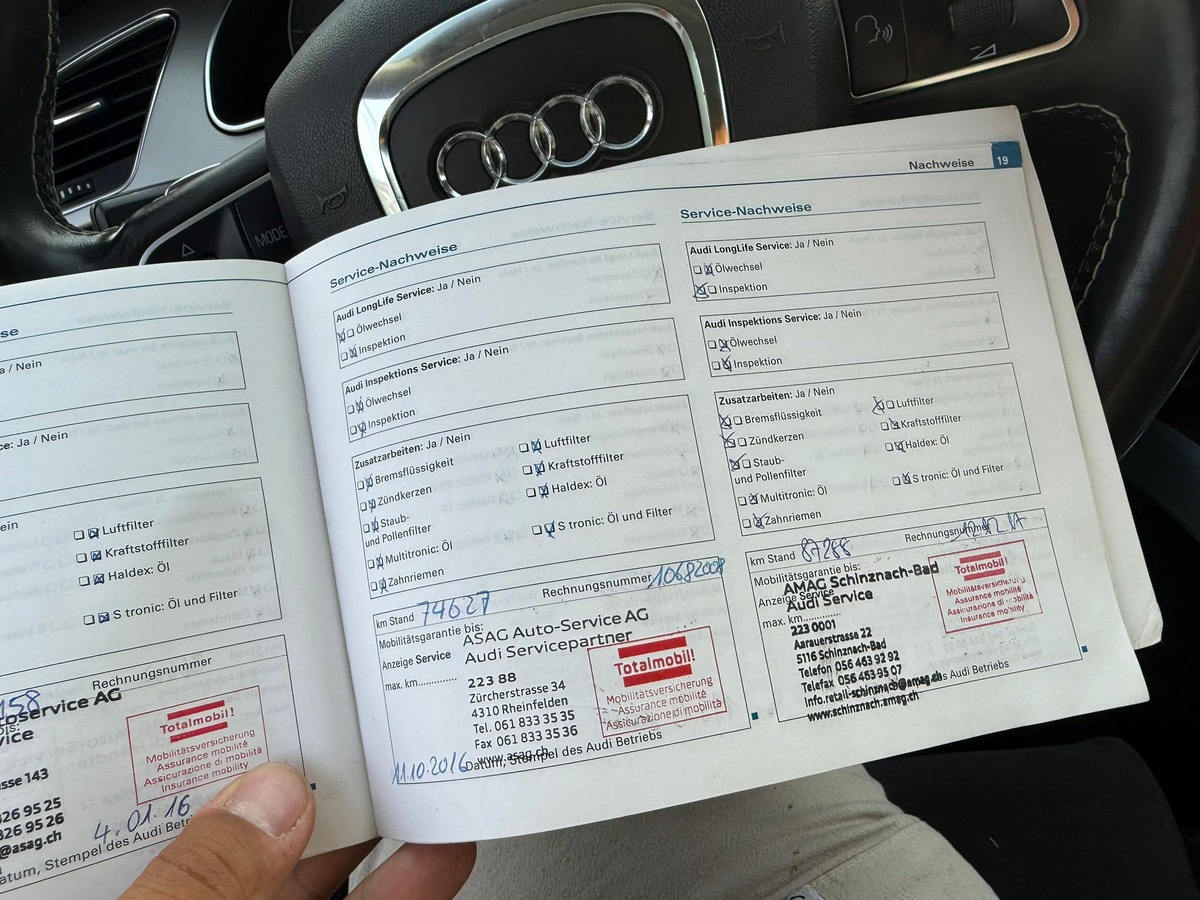 MODE
Nachweise 19
se
a / Nein
ce: Ja / Nein
ein
Luftfilter
Kraftstofffilter
Haldex: Öl
S tronic: Öl und Filter
158
Rechnungsnummer
toservice AG
vice
asse 143
326 95 25
326 95 26
@asag.ch
Totalmobil!
Mobilitätsversicherung
Assurance mobilité
Assicurazione di mobilità
Insurance mobility
4.01.16
atum, Stempel des Audi Betri
Service-Nachweise
Audi LongLife Service: Ja / Nein
Ölwechsel
Inspektion
Audi Inspektions Service: Ja / Nein
Ölwechsel
Inspektion
Zusatzarbeiten: Ja / Nein
Bremsflüssigkeit
Zündkerzen
Staub-
und Pollenfilter
Multitronic: Öl
Zahnriemen
Luftfilter
Kraftstofffilter
Haldex: Öl
S tronic: Öl und Filter
km Stand 74627
Rechnungsnummer 10682008
Mobilitätsgarantie bis:
Anzeige Service
max. km.............
ASAG Auto-Service AG
Audi Servicepartner
223 88
Zürcherstrasse 34
4310 Rheinfelden
Tel. 061 833 35 35
Fax 061 833 35 36
www.asag.ch
Totalmobil!
Mobilitätsversicherung
Assurance mobilité
Assicurazione di mobilità
11.10.2016
Datum, Stempel des Audi Betriebs
Service-Nachweise
Audi LongLife Service: Ja / Nein
Ölwechsel
Inspektion
Audi Inspektions Service: Ja / Nein
Ölwechsel
Inspektion
Zusatzarbeiten: Ja / Nein
Bremsflüssigkeit
Zündkerzen
Staub-
und Pollenfilter
Multitronic: Öl
Zahnriemen
Luftfilter
Kraftstofffilter
Haldex: Öl
S tronic: Öl und Filter
km Stand 87288
Rechnungsnummer 12.12.17
Mobilitätsgarantie bis:
Anzeige Service
max. km.............
AMAG Schinznach-Bad
Audi Service
223 0001
Aarauerstrasse 22
5116 Schinznach-Bad
Telefon 056 463 92 92
Telefax 056 463 95 07
Info.retail-schinznach@amag.ch
www.schinznach.amag.ch
Totalmobil!
Mobilitätsversicherung
Assurance mobilité
Assicurazione di mobilità
Insurance mobility
des Audi Betriebs